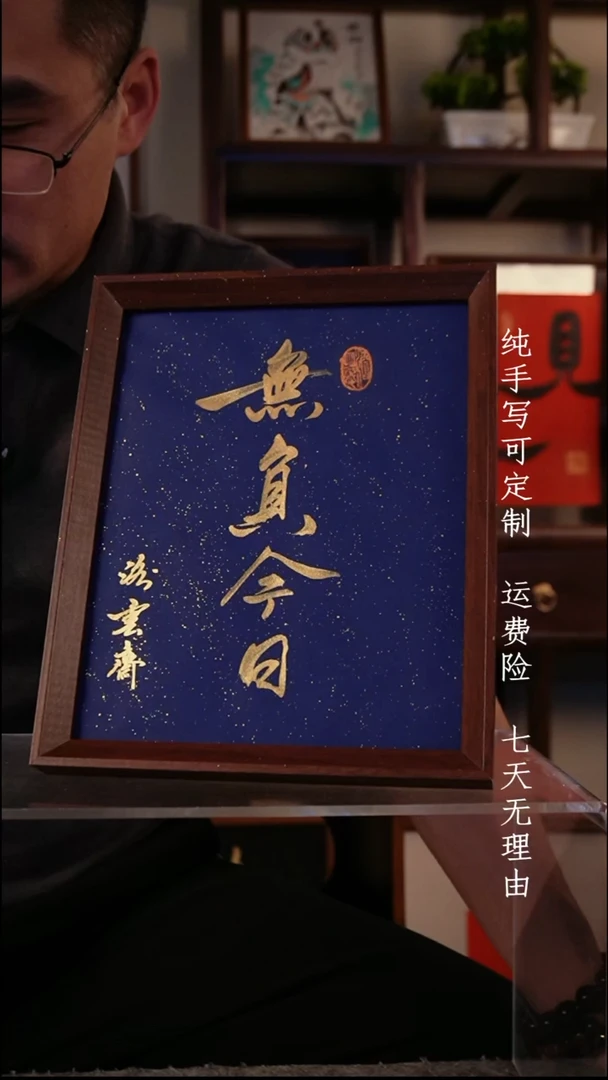 無負今日
雲齋
纯手写可定制 运费险 七天无理由
見